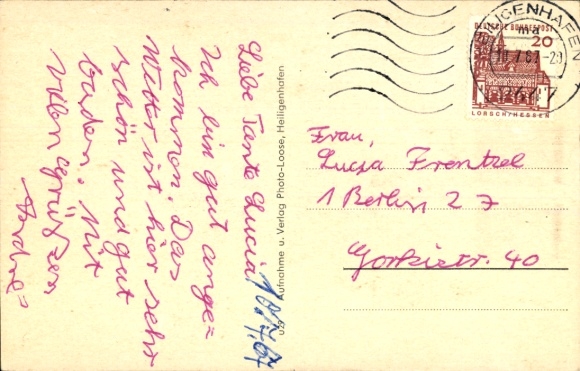 Liebe Tante Lucia!
Ich bin gut ange=
kommen. Das
Wetter ist hier sehr
schön und gut
baden. Mit
vielen Grüßen
Andre
10.7.67
U 29 Aufnahme u. Verlag Photo-Loose, Heiligenhafen
LIGENHAFEN
10.7.67-20
DEUTSCHE BUNDESPOST
20
LORSCH/HESSEN
Frau,
Lucja Frentzel
1 Berlin 27
Gorkistr. 40